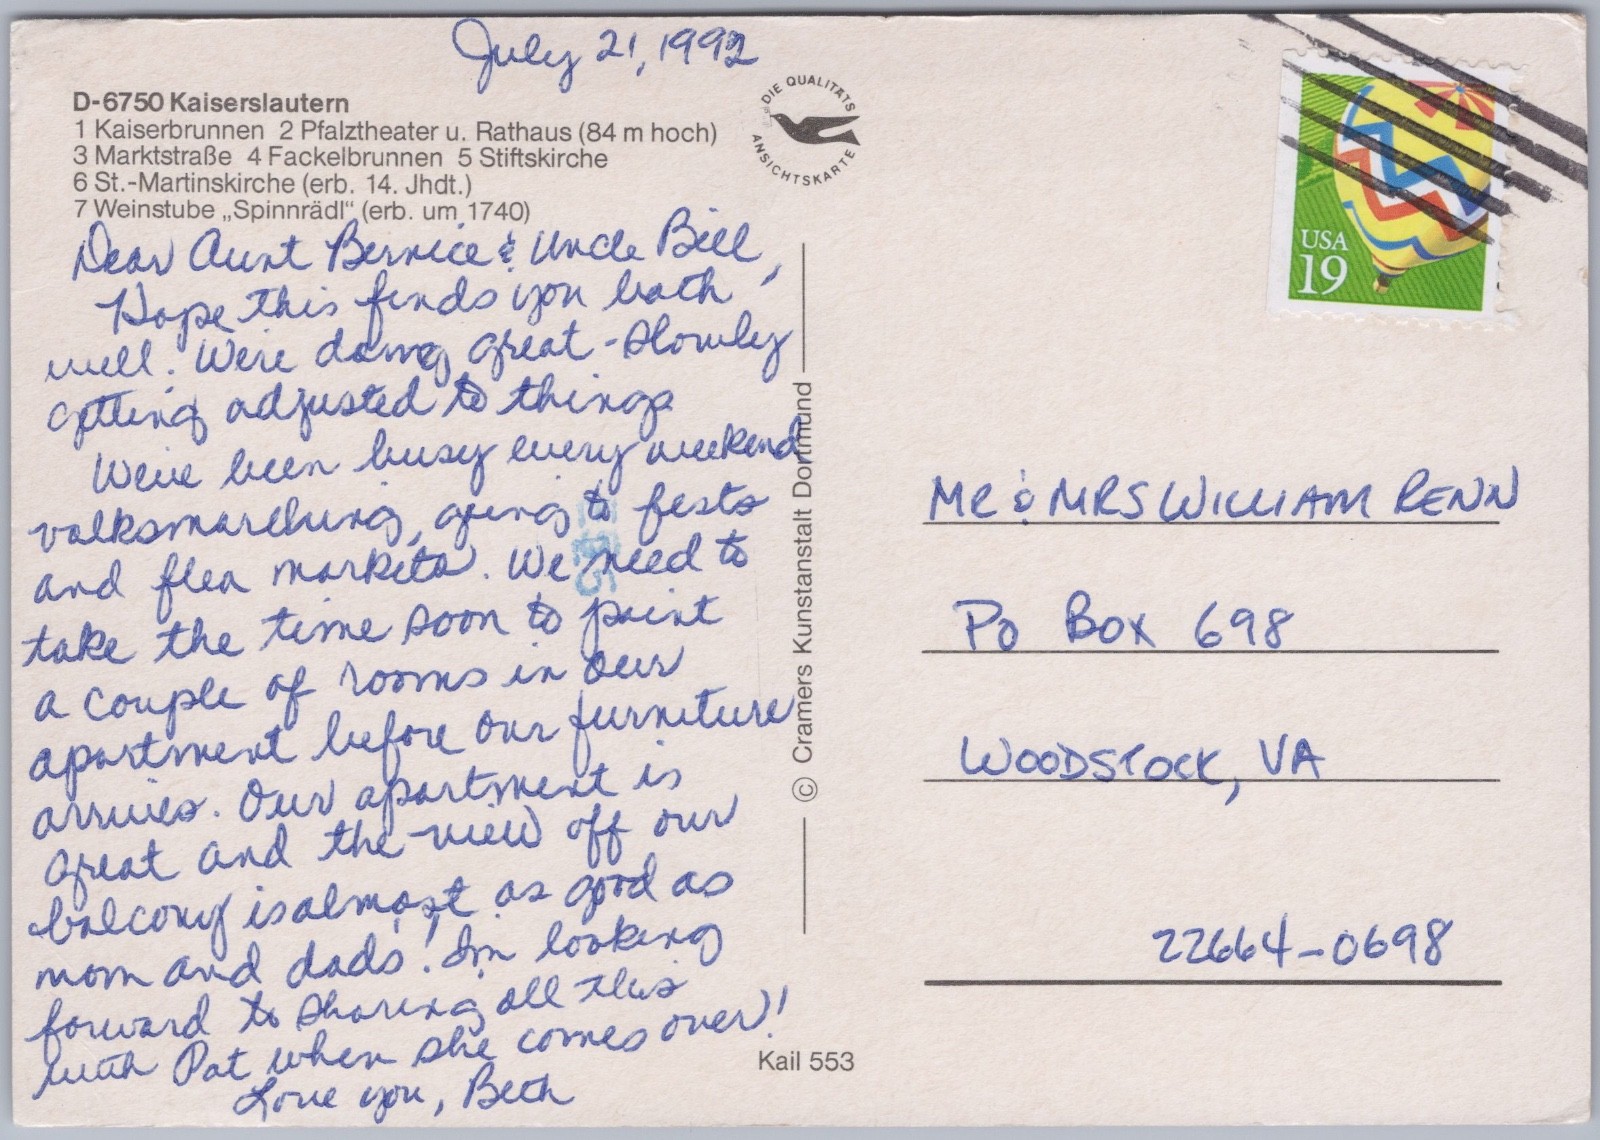 July 21, 1992
D-6750 Kaiserslautern
1 Kaiserbrunnen 2 Pfalztheater u. Rathaus (84 m hoch)
3 Marktstraße 4 Fackelbrunnen 5 Stiftskirche
6 St.-Martinskirche (erb. 14. Jhdt.)
7 Weinstube „Spinnrädl“ (erb. um 1740)
DIE QUALITÄTS
ANSICHTSKARTE
Dear Aunt Bernice & Uncle Bill,
Hope this finds you both
well. We're doing great - slowly
getting adjusted to things
We've been busy every weekend
volksmarching, going to fests
and flea markets. We need to
take the time soon to paint
a couple of rooms in our
apartment before our furniture
arrives. Our apartment is
great and the view off our
balcony is almost as good as
mom and dads! I'm looking
forward to sharing all this
with Pat when she comes over!
Love you, Beth
© Cramers Kunstanstalt Dortmund
Kail 553
USA
19
MR & MRS WILLIAM RENN
PO BOX 698
WOODSTOCK, VA
22664-0698